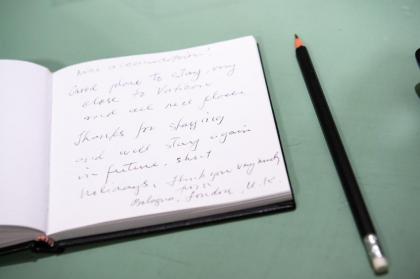 Nice accomodation!
Good place to stay, very
close to Vatican
and all nice places
Thanks for staying
and will stay again
in future, short
Holidays. Thank you very much
London, U.K